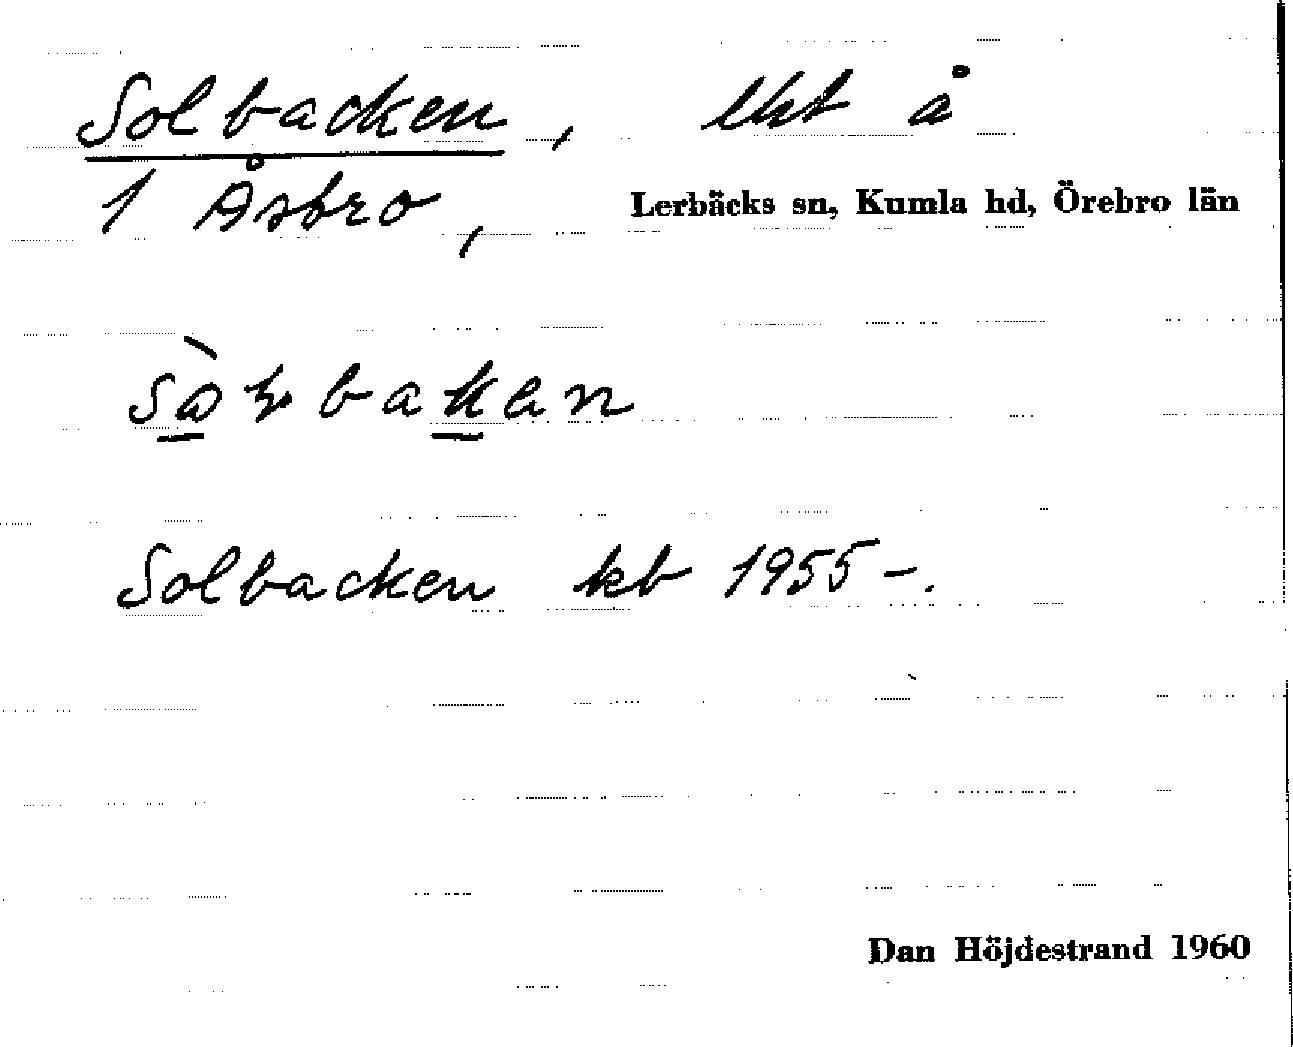 Solbacken, lht å
1 Åsbro, Lerbäcks sn, Kumla hd, Örebro län
Solbacken kb 1955-.
Dan Höjdestrand 1960